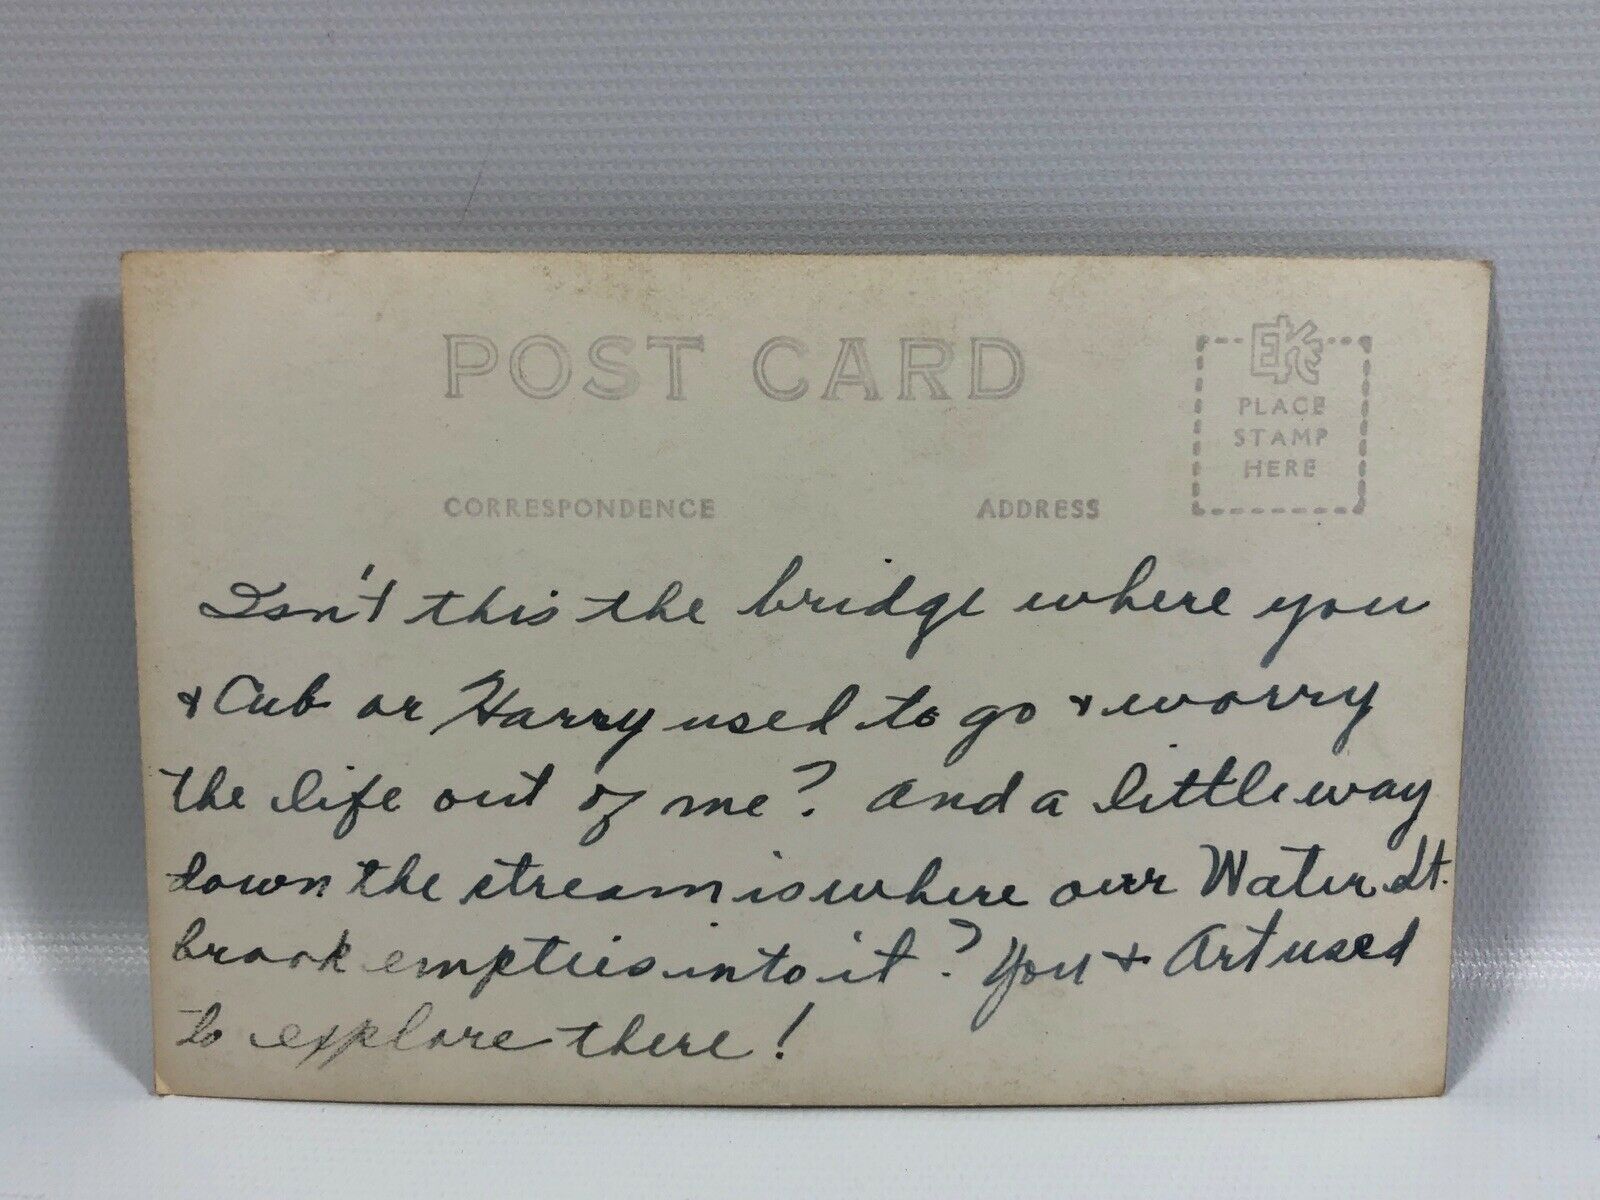 POST CARD
EKC
PLACE
STAMP
HERE
CORRESPONDENCE
ADDRESS
Isn't this the bridge where you
& Cub or Harry used to go & worry
the life out of me? And a little way
down the stream is where our Water St.
brook empties into it? You & Art used
to explore there!